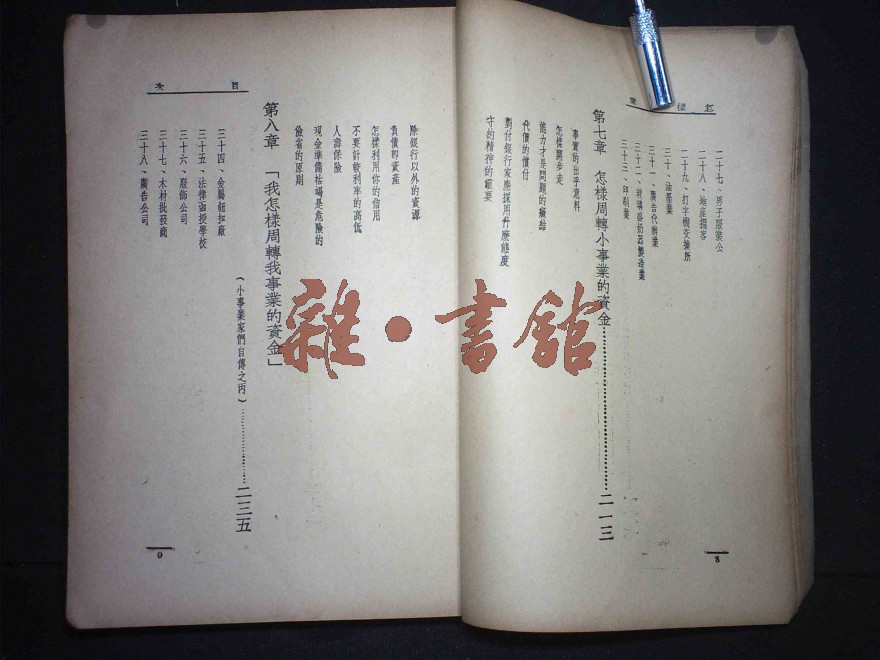 怎樣
二十七、男子服裝公
二十八、地產掮客
二十九、打字機交換所
三十、油墨業
三十一、廣告代辦業
三十二、玻璃發奶器製造業
三十三、印刷業
第七章 怎樣周轉小事業的資金……二一三
事實的出乎意料
怎樣開步走
能力才是問題的癥結
代價的償付
對付銀行家應採用什麼態度
守約精神的重要
8
目次
除銀行以外的資源
負債即資產
怎樣利用你的信用
不要計較利率的高低
人壽保險
現金準備枯竭是危險的
儉省的原則
第八章 「我怎樣周轉我事業的資金」
(小事業家們自傳之丙)……二三五
三十四、金屬鈕扣廠
三十五、法律函授學校
三十六、服飾公司
三十七、木材批發商
三十八、廣告公司
9
雜·書館